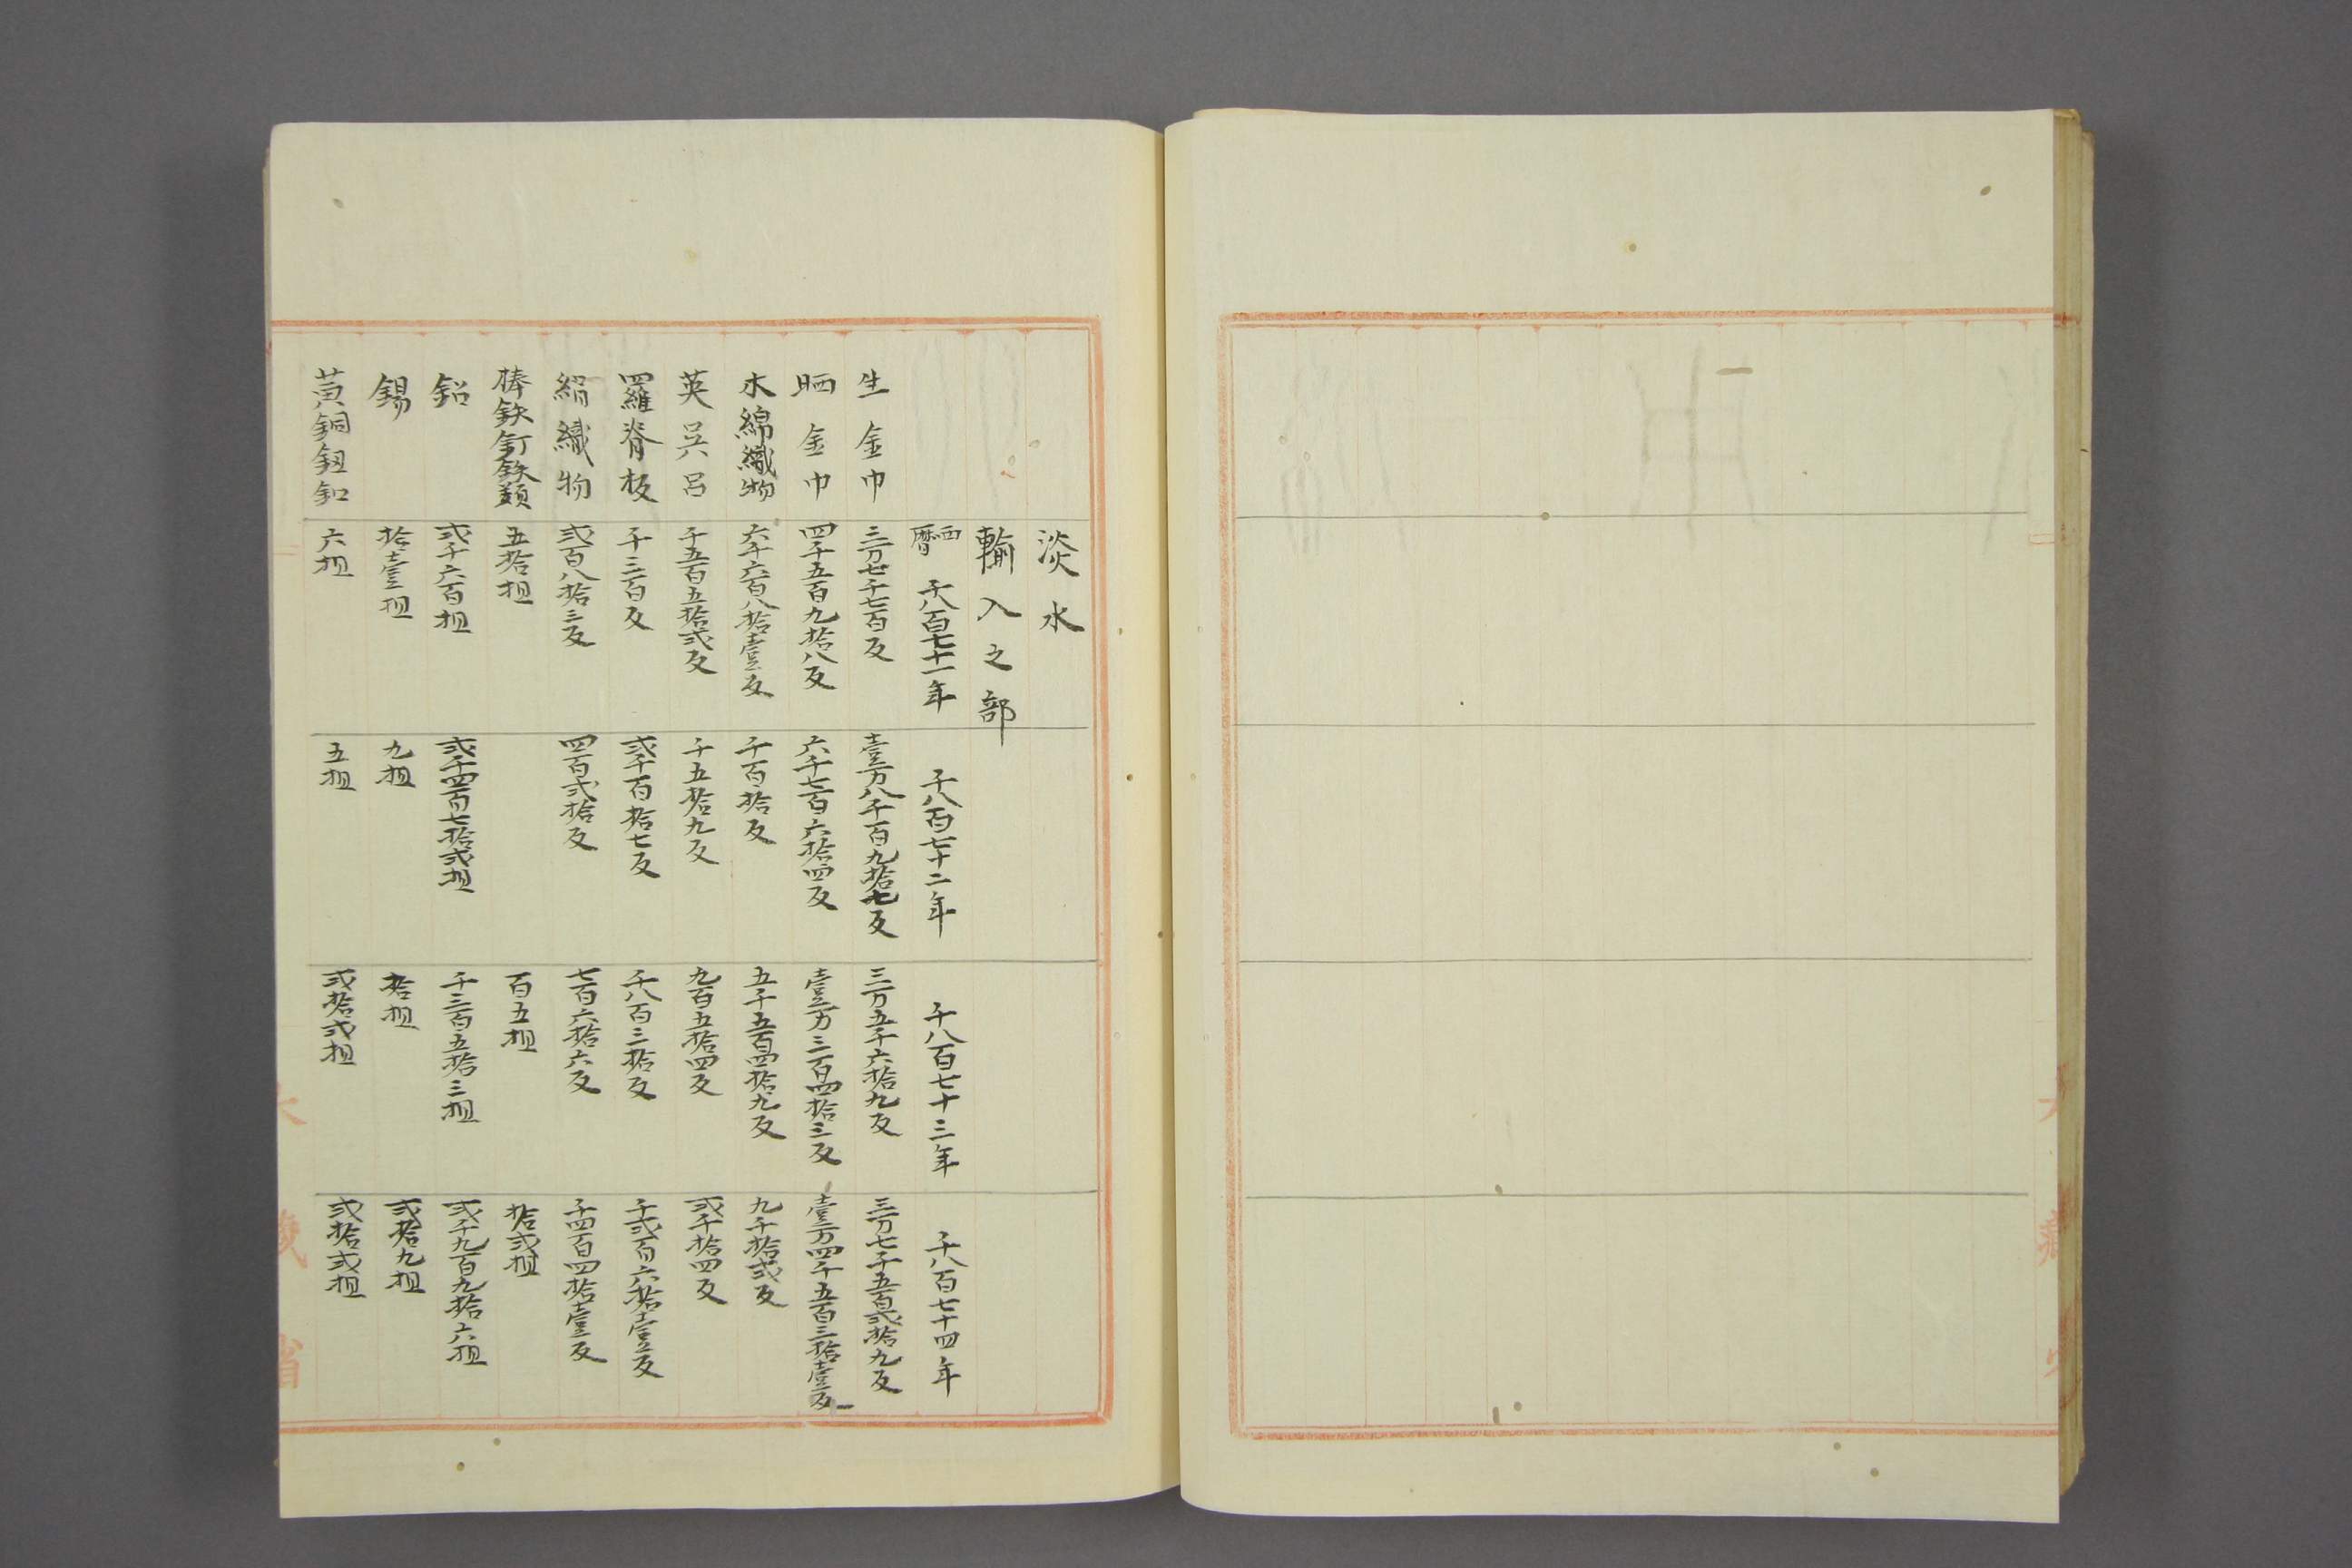 淡水
輸入之部
西暦 千八百七十一年 千八百七十二年 千八百七十三年 千八百七十四年
生金巾 三万七千七百反 壹万八千百九拾七反 三万五千六拾九反 三万七千五百弐拾九反
晒金巾 四千五百九拾八反 六千七百六拾四反 壹万三百四拾三反 壹万四千五百三拾壹反
木綿織物 六千六百八拾壹反 千百拾反 五千五百四拾九反 九千拾弐反
英呉呂 千五百五拾弐反 千五拾九反 九百五拾四反 弐千拾四反
羅脊板 千三百反 弐千百拾七反 千八百三拾反 千弐百六拾壹反
絹織物 弐百八拾三反 四百弐拾反 七百六拾六反 千四百四拾壹反
棒鉄釘鉄類 五拾担 百五担 拾弐担
鉛 弐千六百担 弐千四百七拾弐担 千三百五拾三担 弐千九百九拾六担
錫 拾壹担 九担 拾担 弐拾九担
黄銅鈕釦 六担 五担 弐拾弐担 弐拾弐担
大蔵省